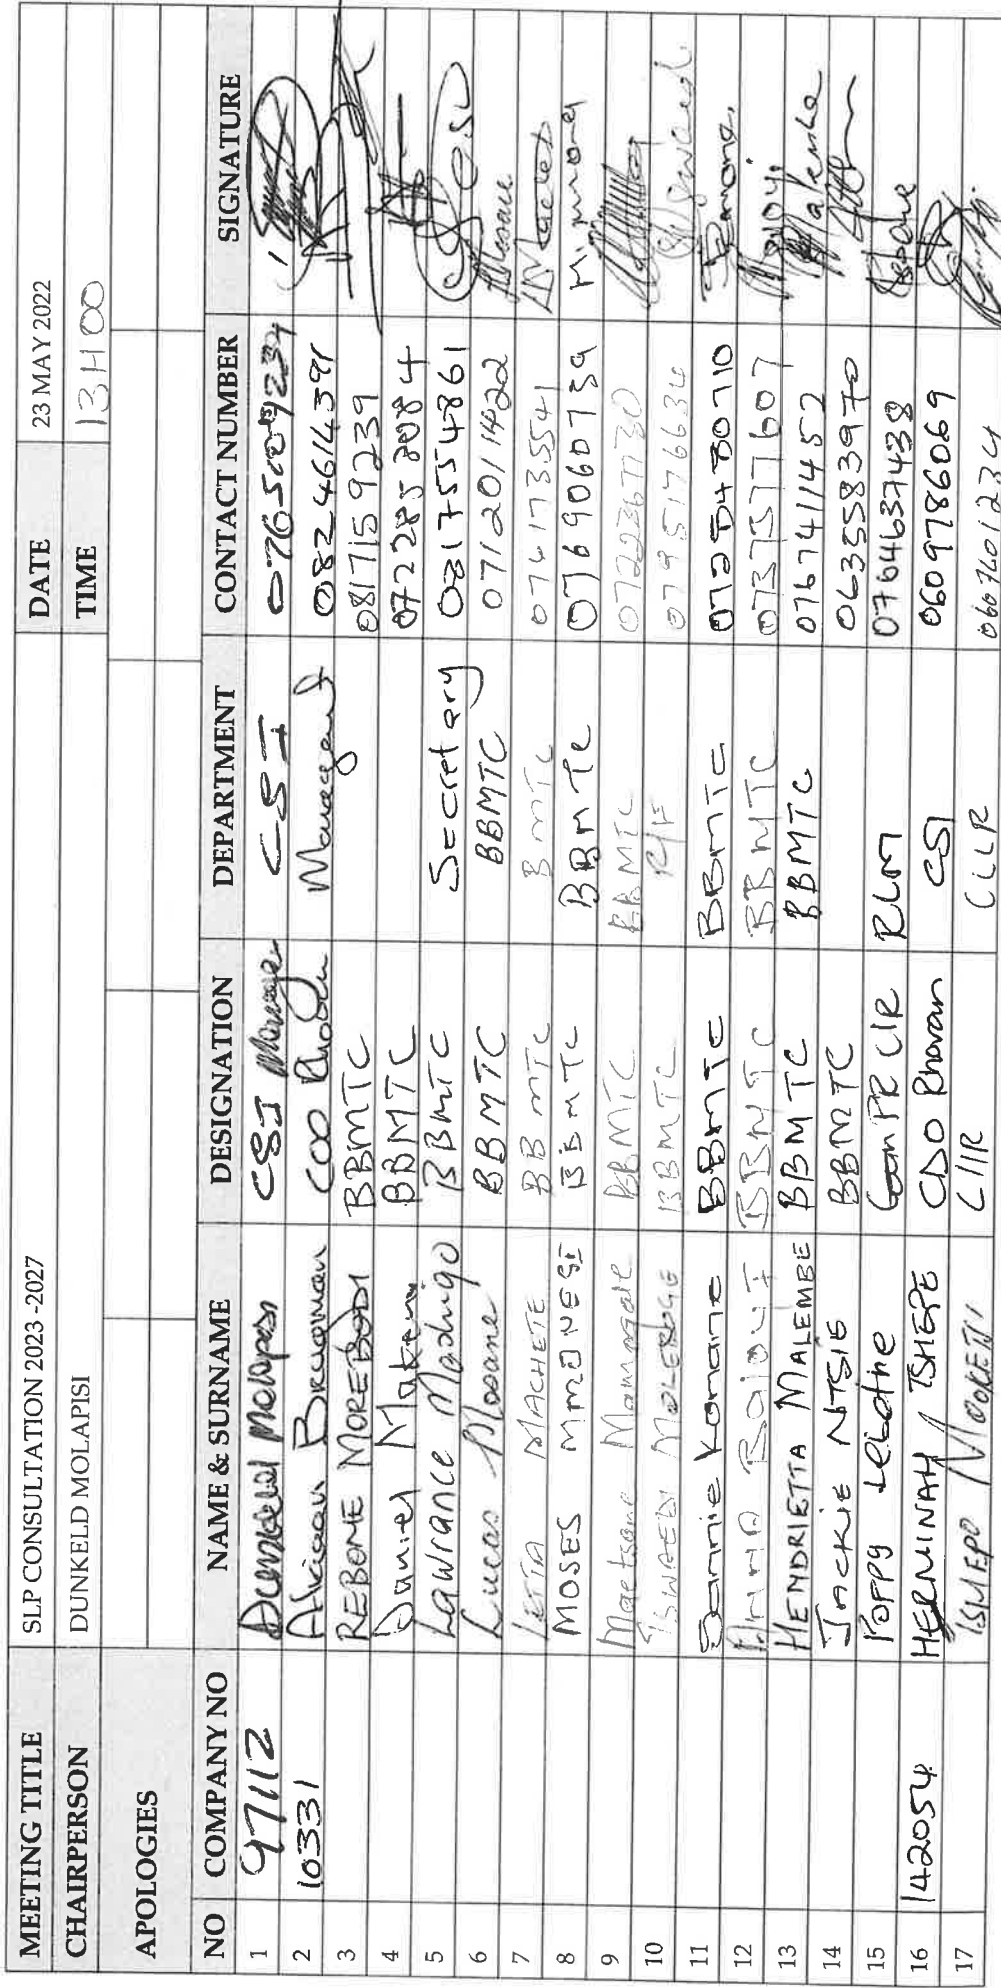 MEETING TITLE SLP CONSULTATION 2023 -2027 DATE 23 MAY 2022
CHAIRPERSON DUNKELD MOLAPISI TIME 13H00
APOLOGIES
NO COMPANY NO NAME & SURNAME DESIGNATION DEPARTMENT CONTACT NUMBER SIGNATURE
1 97112 Molapisi CSI Manager CSI
2 10331 COO 0824614391
3 REBONE MOREBODI BBMTC 0817159239
4 Daniel BBMTC
5 Lawrance Madihgo BBMTC Secretary 0817554861
6 Lucas Mosane BBMTC BBMTC 0712011422
7 LETTA MACHETE BBMTC BMTC 0741735541
8 MOSES MMONESI BBMTC BBMTC 0769060759
9 Maetsane Mamogale BBMTC BBMTC
10 BBMTC 0795176634
11 Sannie Komane BBMTC BBMTC 0725480710 Komane
12 ANNA BBMTC BBMTC 0737577607
13 HENDRIETTA MALEMBE BBMTC BBMTC 0767411452 Malembe
14 Jackie NTSIE BBMTC 0635583970
15 Poppy Lebothe RLM 0764637438
16 142054 HERMINAH TSHEPE CDO Rhovan CSI 0609786069
17 TSHEPO CllR CLLR 0607601234